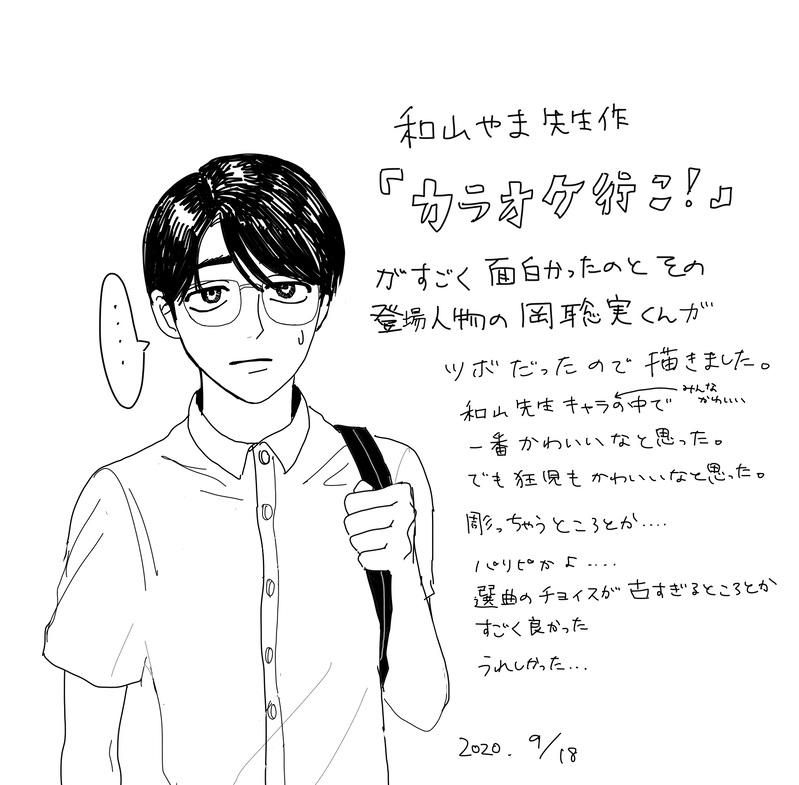 和山やま先生作
『カラオケ行こ!』
がすごく面白かったのとその
登場人物の岡聡実くんが
ツボだったので描きました。
みんな
かわいい
和山先生キャラの中で
一番かわいいなと思った。
でも狂児もかわいいなと思った。
彫っちゃうところとか....
パリピかよ....
選曲のチョイスが古すぎるところとか
すごく良かった
うれしかった...
2020. 9/18